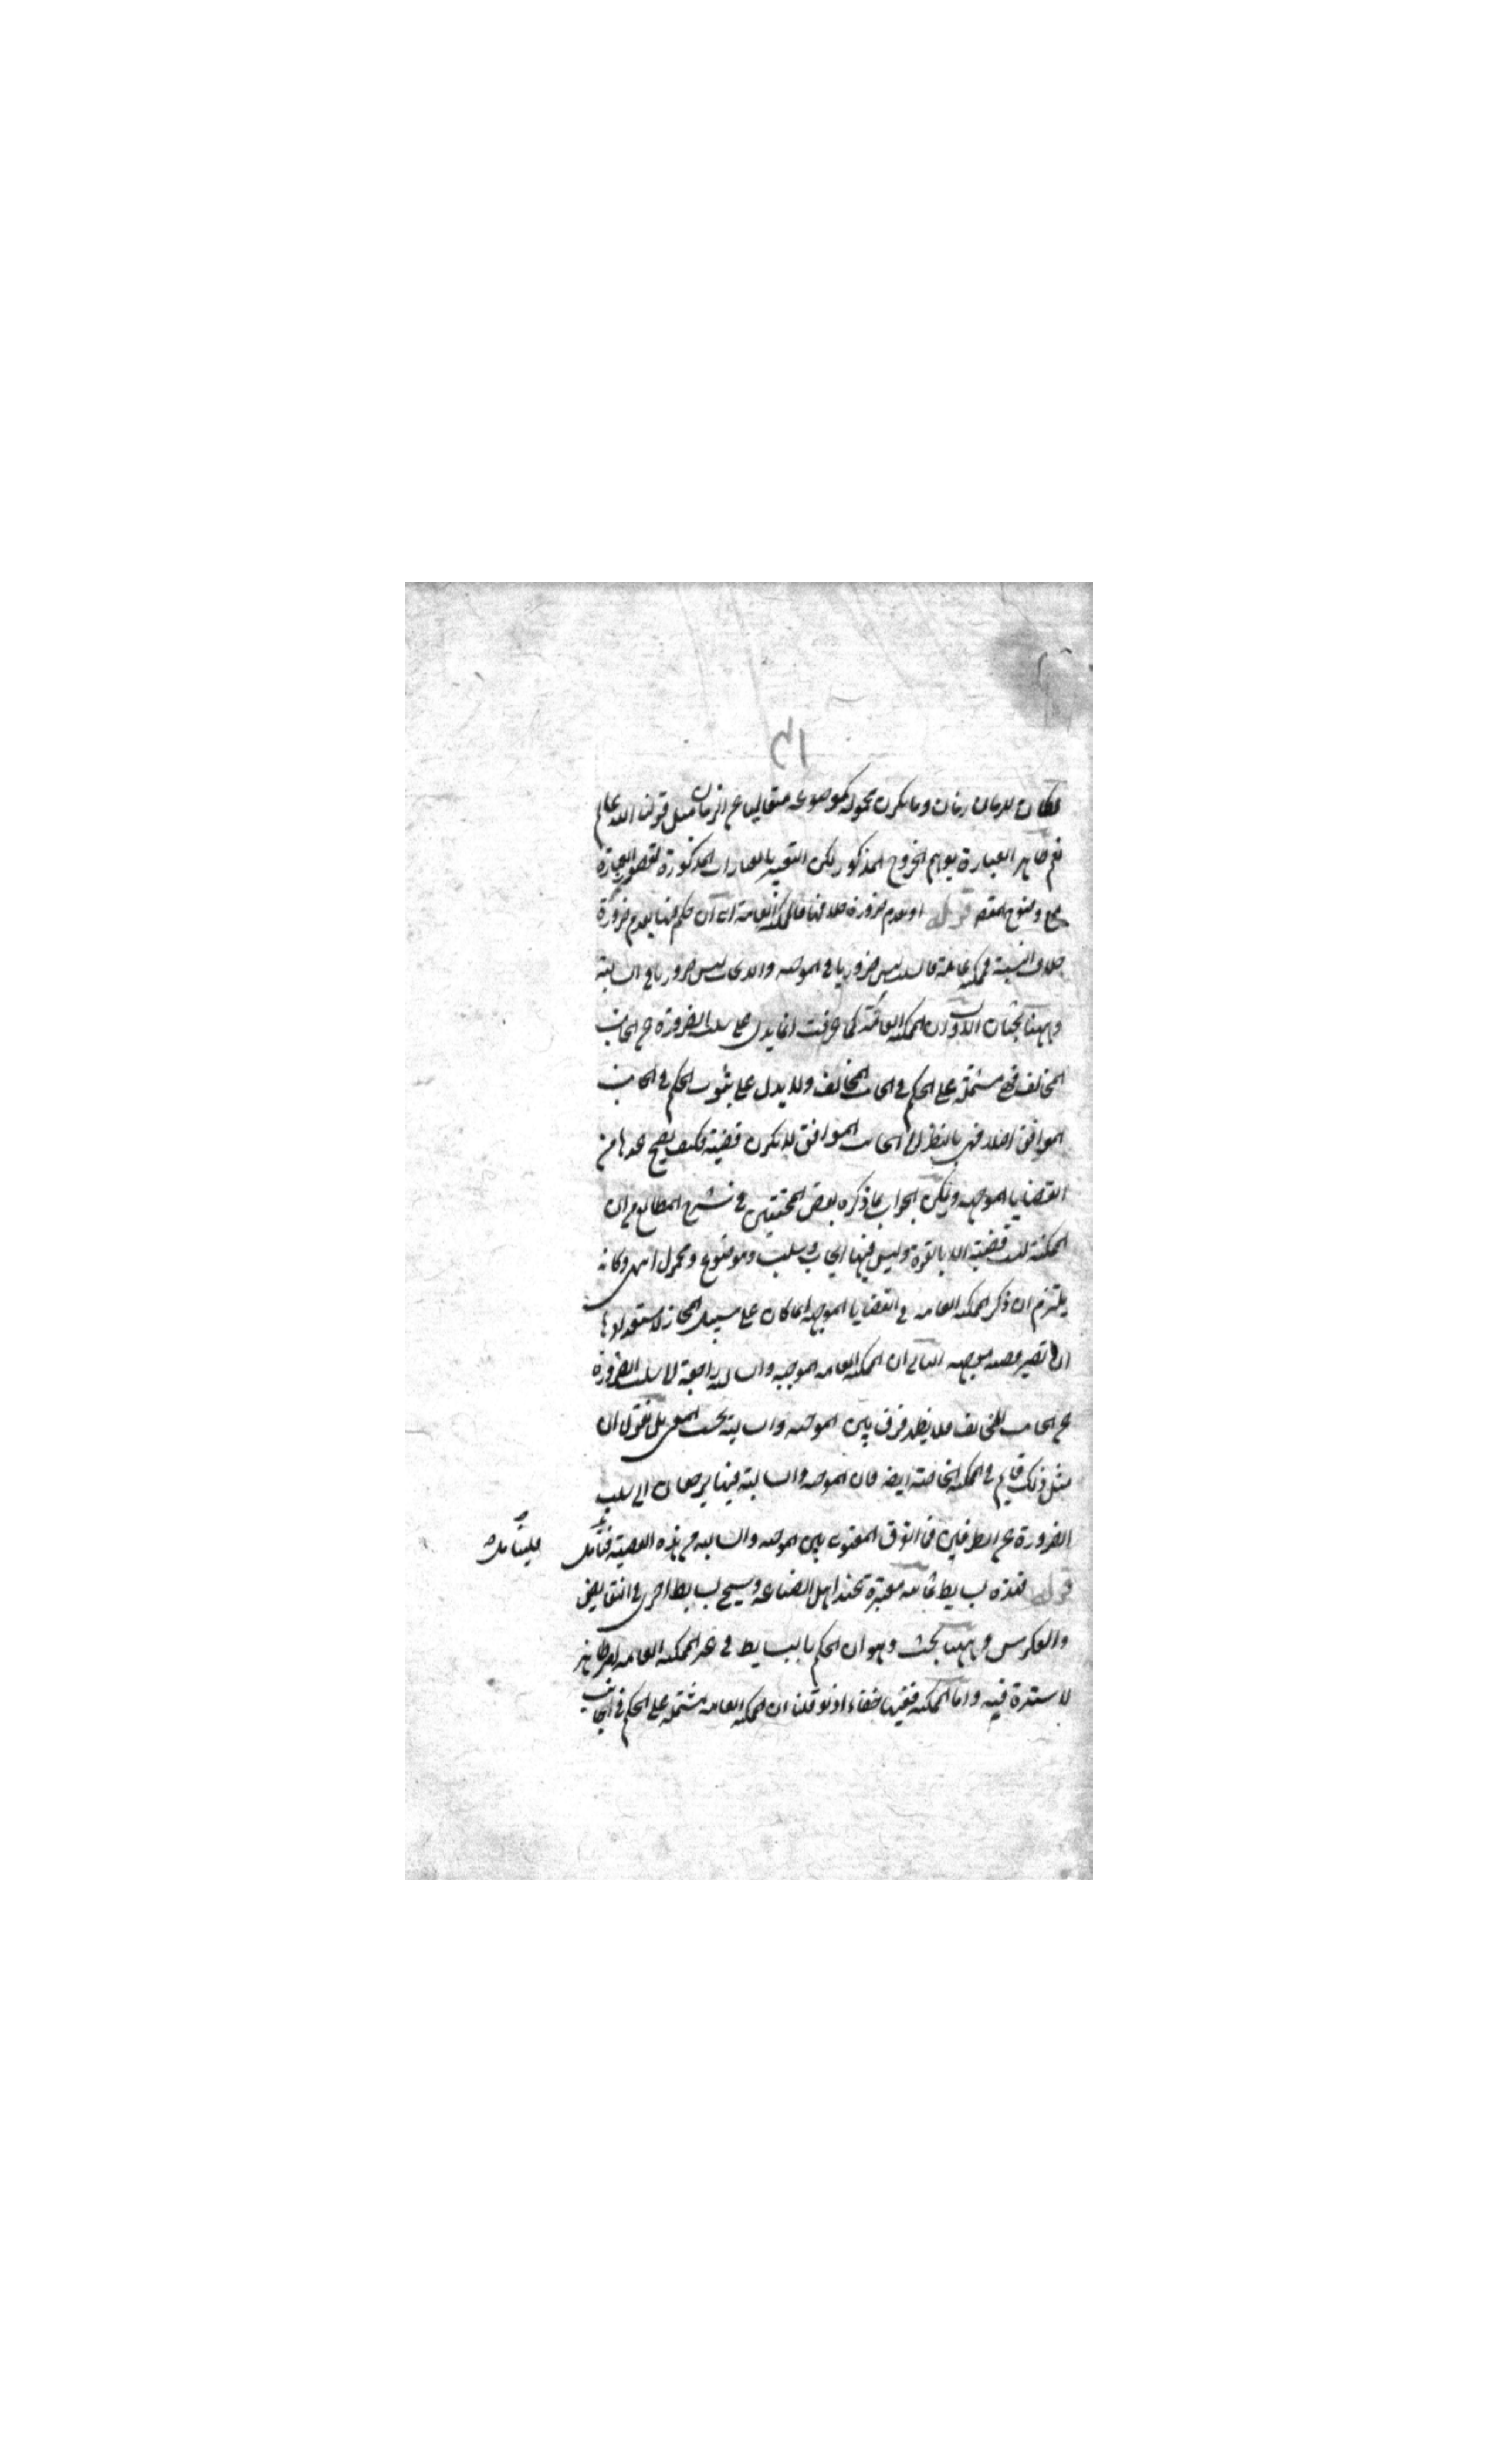 لكان للزمان زمان وما يكون محموله كموضوعه متعاليا عن الزمان مثل قولنا الله عالم
نعم ظاهر العبارة يوهم الخروج المذكور لكن التعبير بالعبارات المذكورة لقصور العبارة
مع وضوح المقصد قوله او بعدم ضرورة خلافها فالممكنة العامة اى ان حكم فيها بعدم ضرورة
خلاف النسبة فممكنة عامة فالسلب ليس ضروريا في الموجبه والايجاب ليس ضروريا في السالبة
وههنا بحثان الاول ان الممكنة العامة كما عرفت انما يدل على سلب الضرورة عن الجانب
المخالف فهي مشتملة على الحكم في الجانب المخالف ولا يدل على ثبوت الحكم في الجانب
الموافق اصلا فهي بالنظر الى الجانب الموافق لا تكون قضية فكيف يصح عدها من
القضايا الموجهه ويمكن الجواب بما ذكره بعض المحققين في شرح المطالع من ان
الممكنة ليست قضية الا بالقوة وليس فيها ايجاب وسلب وموضوع ومحمول انتهى وكانه
يلتزم ان ذكر الممكنة العامه في القضايا الموجهة انما كان على سبيل المجاز لاستعدادها
ان تصير قضيه موجهه الثانى ان الممكنة العامه الموجبه والسالبة راجعة الى سلب الضرورة
عن الجانب المخالف فلا يظهر فرق بين الموجبه والسالبة بحسب المعنى بل نقول ان
مثل ذلك قايم في الممكنة الخاصة ايضا فان الموجبه والسالبة فيها يرجعان الى سلب
الضرورة عن الطرفين فما الفرق المعنوى بين الموجبه والسالبه من هذه القضية فتامل فليتامل
قوله فهذه بسايط ثمانيه معتبرة عند اهل الصناعه وسيجئ بسايط اخرى في النقايض
والعكوس وههنا بحث وهو ان الحكم بالبسايط في غير الممكنه العامه امر ظاهر
لا سترة فيه واما الممكنه ففيها خفاء اذ لو قلنا ان الممكنه العامه مشتملة على الحكم في الجانب